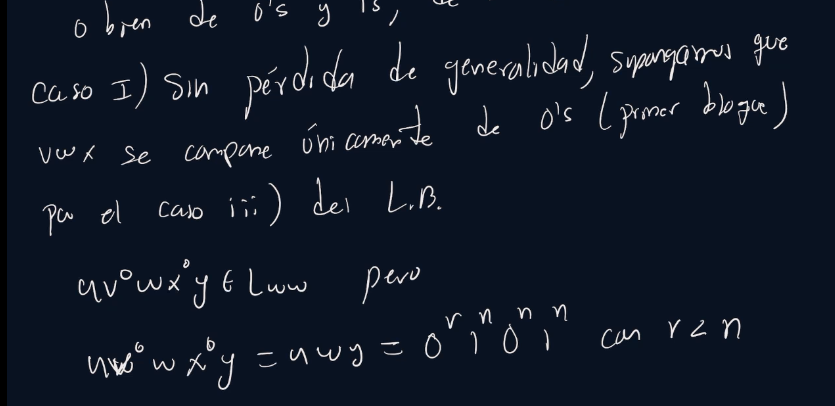 o bien de 0's y 1s, de
caso I) Sin pérdida de generalidad, supongamos que
vwx se compone únicamente de 0's (primer bloque)
por el caso iii) del L.B.
uv⁰wx⁰y ∈ Lww pero
uv⁰wx⁰y = uwy = 0ʳ1ⁿ0ⁿ1ⁿ con r < n